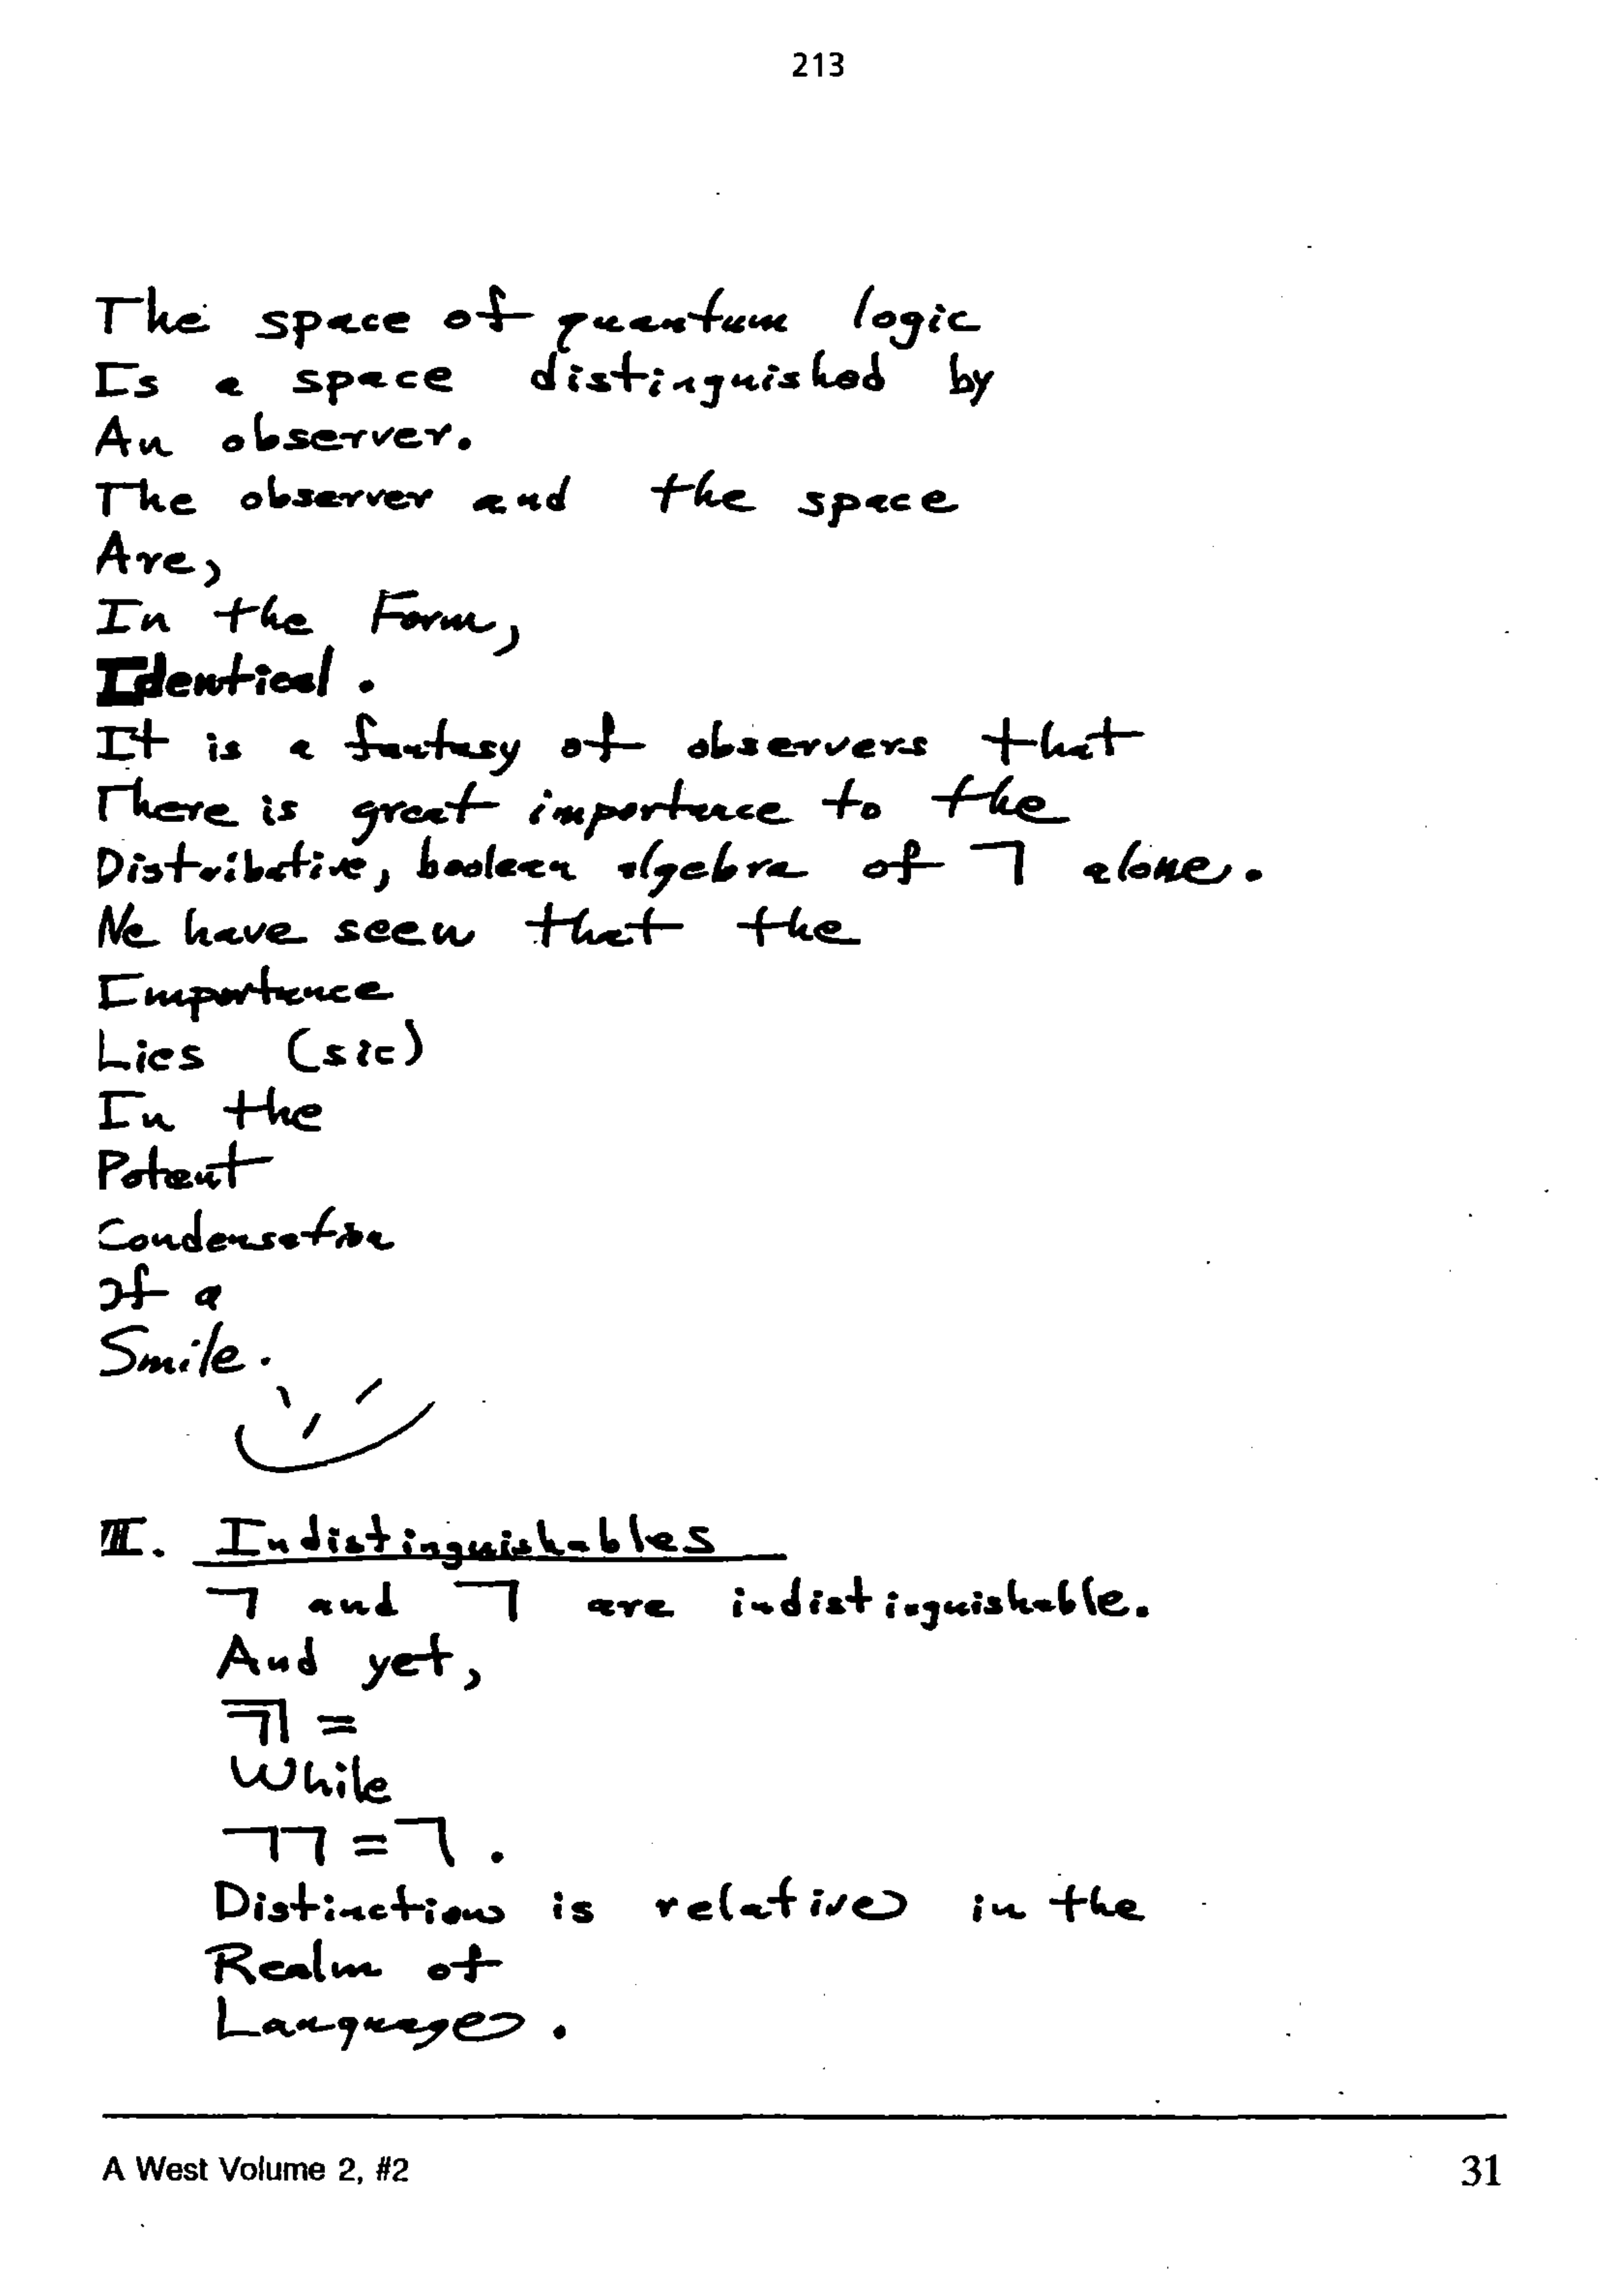 213
The space of quantum logic
Is a space distinguished by
An observer.
The observer and the space
Are,
In the Form,
Identical.
It is a fantasy of observers that
There is great importance to the
Distributive, boolean algebra of ⌝ alone.
We have seen that the
Importance
Lies (sic)
In the
Potent
Condensation
Of a
Smile.
III. Indistinguishables
⌝ and ⌝ are indistinguishable.
And yet,
⌝⌝ =
While
⌝⌝ = ⌝.
Distinction is relative in the
Realm of
Language.
A West Volume 2, #2
31